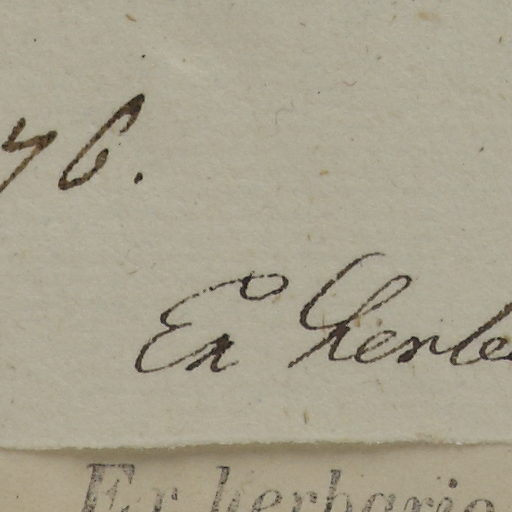 76.
Ex herb
Ex herbario